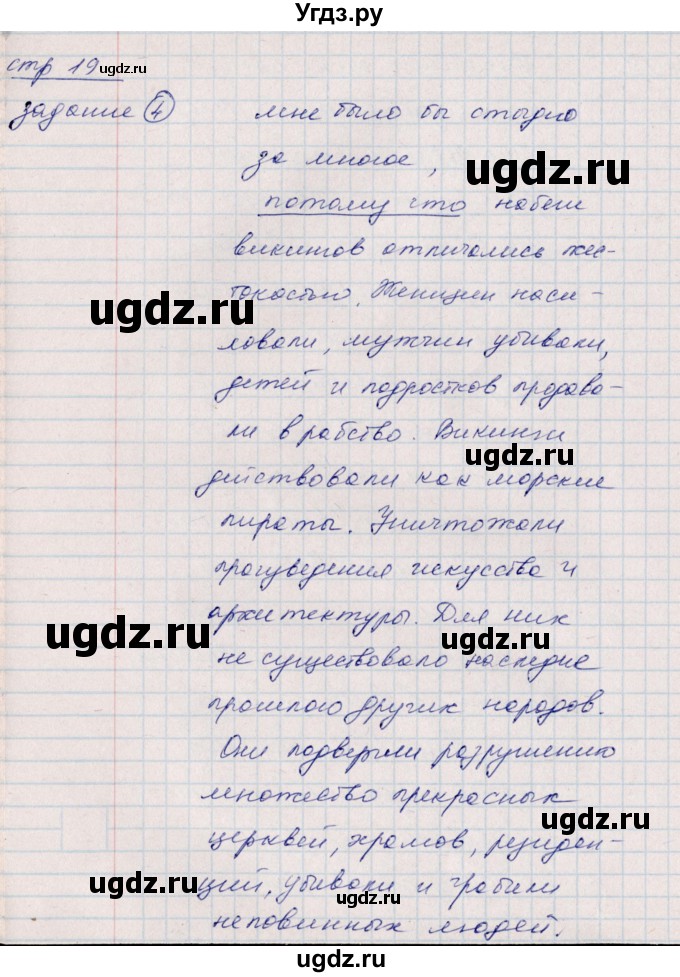 Угдз.ру
стр 19
задание 4 мне было бы стыдно
ugdz.ru
за многое,
потому что набеги
викингов отличались жес-
ugdz.ru
токостью. Женщин наси-
ловали, мужчин убивали,
детей и подростков продава-
ли в рабство. Викинги
ugdz.ru
действовали как морские
пираты. Уничтожали
произведения искусства и
архитектуры. Для них
ugdz.ru
ugdz.ru
не существовало наследие
прошлого других народов.
Они подвергли разрушению
множество прекрасных
ugdz.ru
церквей, храмов, резиден-
ugdz.ru
ций, убивали и грабили
неповинных людей.
ugdz.ru